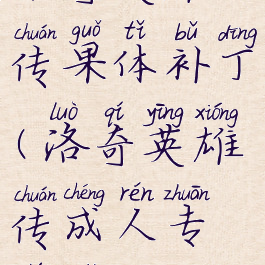 chuán guǒ tǐ bǔ dīng
传果体补丁
luò qí yīng xióng
(洛奇英雄
chuán chéng rén zhuān
传成人专